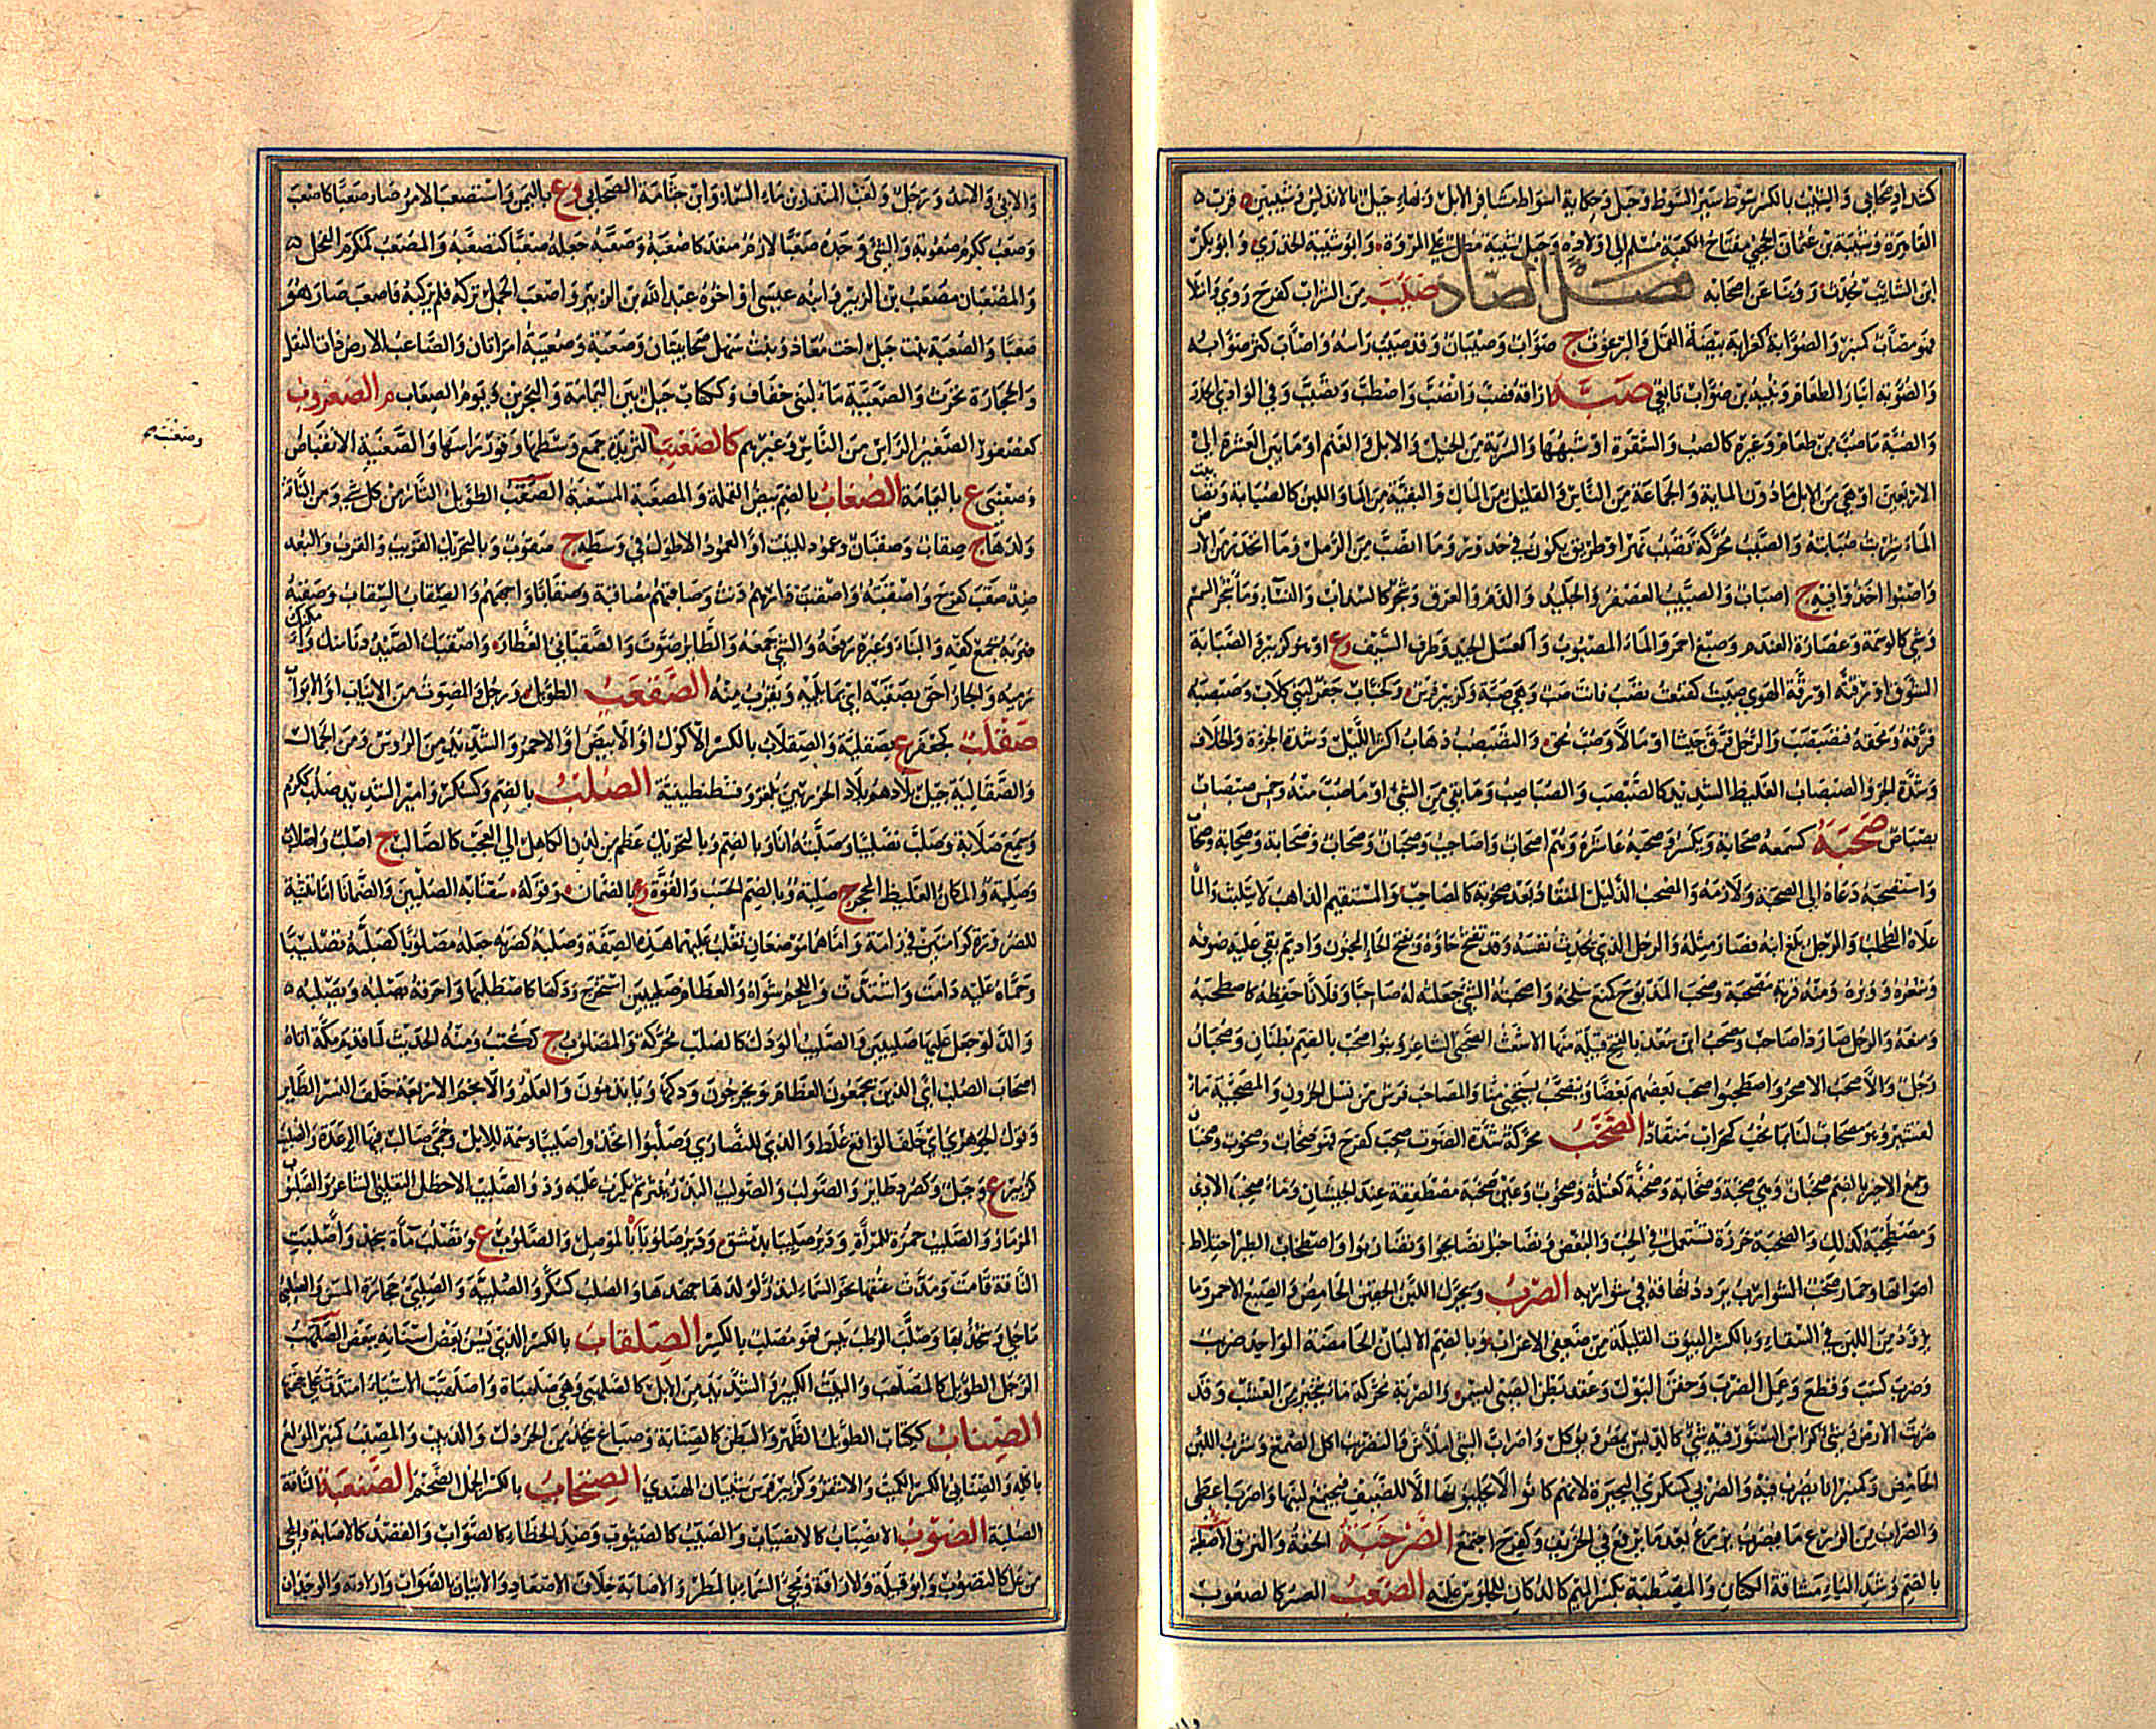 كشداد صحابي والشيب بالكسر سوط سير السوط وجبل وحكاية اصوات مشافر الابل وبهاء جبل بالاندلس وشيبين ة قرب
القاهرة وشيبة بن عثمان الحجبي مفتاح الكعبة مسلم الى اولاده وجبل شيبة مطل على المروة وابو شيبة الخدري وابو بكر
ابن الشايب محدث وروينا عن اصحابه فصل الصاد صئب من الشراب كفرح روي وامتلا
فهو مصأب كمنبر والصؤابة كغرابة بيضة القمل والبرغوث ج صؤاب وصئبان وقد صئب راسه واصأب كثر صؤابه
والصوبة انبار الطعام وعبيد بن صؤاب تابعي صبه اراقه فصب وانصب واصطب وتصبب وفي الوادي انحدر
والصبة ما صب من طعام وغيره كالصب والسفرة او شبهها والسربة من الخيل والابل والغنم او ما بين العشرة الى
الاربعين او هي من الابل ما دون الماية والجماعة من الناس والقليل من المال والبقية من الماء واللبن كالصبابة وتصاببت
الماء شربت صبابته والصبب محركة تصبب نهر او طريق يكون في حدور وما انصب من الرمل وما انحدر من الارض
واصبوا اخذوا فيه ج اصباب والصبيب العصفر والجليد والدم والعرق وشجر كالسذاب والسناء وماء شجر السمسم
وشيء كالوسمة وعصارة العندم وصبغ احمر والماء المصبوب والعسل الجيد وطرف السيف وع او هو كزبير والصبابة
الشوق او رقته او رقة الهوى صببت كقنعت تصب فانت صب وهي صبة وكزبير فرس وكحباب جفر لبني كلاب وصبصبه
فرقه ومحقه فتصبصب والرجل فرق جيشا او مالا وصب محق والتصبصب ذهاب اكثر الليل وشدة الجرأة والخلاف
وشدة الحر والصبصاب الغليظ الشديد كالصبصب والصباصب وما بقي من الشيء او ما صب منه وخمس صبصاب
بصباص صحبه كسمعه صحابة ويكسر وصحبه عاشره وهم اصحاب واصاحيب وصحبان وصحاب وصحابة وصحابة وصحب
واستصحبه دعاه الى الصحبة ولازمه والمصحب الذليل المنقاد بعد صعوبة كالمصاحب والمستقيم الذاهب لا يتلبث والماء
علاه الطحلب والرجل بلغ ابنه فصار مثله والرجل الذي يحدث نفسه وقد تفتح حاؤه وبفتح الحاء المجنون واديم بقي عليه صوفه
وشعره ووبره ومنه قربة مصحبة وصحب المذبوح كمنع سلخه واصحبته الشيء جعلته له صاحبا وفلانا حفظه كاصطحبه
ومنعه والرجل صار ذا صاحب وصحب ابن سعد بالفتح قبيلة منها الاشعث الصحبي الشاعر وبنو صحب بالضم بطنان وصحبان
رجل والاصحب الاصحر واصطحبوا صحب بعضهم بعضا ويتصحب يستحيي منا والمصاحب فرس من نسل الحرون والمصحبية ماء
لقشير وهو مصحاب لنا بما نحب كمحراب منقاد الصخب محركة شدة الصوت صخب كفرح فهو صخاب وصخب وصخوب وصخبان
وجمع الاخير بالضم صخبان وهي صخبة وصخابة وصخبة كعتلة وصخوب وعين صخبة مصطفقة عند الجيشان وماء صخب الاذي
ومصطخبه كذلك والصخبة خرزة تستعمل في الحب والبغض وتصاخبوا تصايحوا وتضاربوا واصطخاب الطير اختلاط
اصواتها وحمار صخب الشوارب يردد نهاقه في شواربه الصرب ويحرك اللبن الحقين الحامض والصبغ الاحمر وما
يزود من اللبن في السقاء وبالكسر البيوت القليلة من ضعفى الاعراب وبالضم الالبان الحامضة الواحد صريب
وصرب كسب وقطع وعمل الصرب وحقن البول وعقد بطن الصبي ليسمن والصربة محركة ما يتخير من العشب وقد
صربت الارض وشيء كراس السنور فيه شيء كالدبس يمص ويوكل واصرأب الشيء املاس والتصرب اكل الصمغ وشرب اللبن
الحامض وكمنبر انا يصرب فيه والصربى كسكرى البحيرة لانهم كانوا لا يحلبونها الا للضيف فيجتمع لبنها واصرب اعطى
والصراب من الزرع ما يضرب بزرع بعد ما يرفع في الخريف وكفرح اجتمع الصرخبة الخفة والنزق الاصطبة
بالضم وشد الباء مشاقة الكتان والمصطبة بكسر الميم كالدكان للجلوس عليه الصعب العسر كالصعبوب
والابي والاسد ورجل ولقب المنذر بن ماء السماء وابن جثامة الصحابي وع باليمن واستصعب الامر صار صعبا كاصعب
وصعب ككرم صعوبة والشيء وجده صعبا لازم متعد كاصعبه وصعبه جعله صعبا كتصعبه والمصعب كمكرم الفحل
والمصعبان مصعب بن الزبير وابنه عيسى او اخوه عبد الله بن الزبير واصعب الجمل تركه فلم يركبه فاصعب صار هو
صعبا والصعبة بنت جبل اخت معاذ وبنت سهل صحابيتان وصعبة وصعيبة امرأتان والصاعب الارض ذات النقل
والحجارة تحرث والصعبية ماء لبني خفاف وككتاب جبل بين اليمامة والبحرين ويوم الصعاب م الصعروب
كعصفور الصغير الراس من الناس وغيرهم كالصعنب الثريدة جمع وسطها وقور راسها والصعنبة الانقباض
وصعنبى ع باليمامة الصغاب بالضم بيض القملة والمصغبة المسغبة الصقب الطويل التار من كل شيء ومن الناقة
ولدها ج صقاب وصقبان وعمود للبيت او العمود الاطول في وسطه ج صقوب وبالتحريك القريب والقرب والبعد
ضد صقب كفرح واصقبته واصقبت دارهم دنت وصاقبهم مصاقبة وصقابا واجههم والصقاب السقاب وصقبه
ضربه بجمع كفه والبناء وغيره رفعه والشيء جمعه والطائر صوت والصقباني العطار واصقبك الصيد دنا منك وامكنك
رميه والجار احق بصقبه اي بما يليه ويقرب منه الصقعب الطويل ورجل والمصوت من الانياب او الابواب
صقلب كجعفر ع بصقلية والصقلاب بالكسر الاكول او الابيض او الاحمر والشديد من الرؤس ومن الجمال
والصقالبة جيل بلادهم بلاد الخزر بين بلغر وقسطنطينية الصلب بالضم وكسكر وامير الشديد صلب ككرم
وسمع صلابة وصلب تصليبا وصلبته انا وبالضم وبالتحريك عظم من لدن الكاهل الى العجب كالصالب ج اصلب واصلاب
وصلبة والمكان الغليظ المحجر ج صلبة وبالضم الحسب والقوة وع بالضمان وقوله سقنا به الصلبين والضمانا اما تثنية
للضرورة كرامتين في رامة واما هما موضعان تغلب عليهما هذه الصفة وصلبه كضربه جعله مصلوبا كصلبه تصليبا
وحماه عليه دامت واشتدت واللحم شواه والعظام صليبين استخرج ودكها كاصطلبها واحرقه يصلبه ويصلبه
والدلو جعل عليها صليبين والصليب الودك كالصلب محركة والمصلوب ج ككتب ومنه الحديث لما قدم مكة اتاه
اصحاب الصلب اي الذين يجمعون العظام ويخرجون ودكها ويأتدمون والعلم والانجم الاربعة خلف النسر الطاير
وقول الجوهري اي خلف الواقع غلط والذي للنصارى وصلبوا اتخذوا صليبا وسمة للابل وحمى صالب فيها الرعدة والصلب
كزبير ع وجبل وكصرد طاير والصولب والصوليب البذر ينثر ثم يكرب عليه وذو الصليب الاخطل التغلبي الشاعر والصلوب
المزمار والصليب حمرة للمرأة ودير صليبا بدمشق ودير صلوبا بالموصل والصلوب ع وتصلب ماءة بنجد واصلبت
الناقة قامت ومدت عنقها نحو السماء لتدر لولدها جهدها والصلب كسكر والصلبة والصلبي حجارة المسن والصلبي
ما جلي وشحذ بها وصلب الرطب يبس فهو مصلب بالكسر الصلقاب بالكسر الذي يسن بعض اسنانه ببعض الصلهب
الرجل الطويل كالمصلهب والبيت الكبير والشديد من الابل كالصلهبى وهي صلهباة واصلهبت الاشياء امتدت على جهتها
الصناب ككتاب الطويل الظهر والبطن كالصنابة وصباغ يتخذ من الخردل والزبيب والمصنب كمنبر المولع
باكله والصنابي بالكسر الكميت والاشقر وكزبير فرس شيبان الهندي الصنخاب بالكسر الجمل الضخم الصنعبة الناقة
الصلبة الصوب الانصباب كالانصياب والصيب كالصيوب وضد الخطاء كالصواب والقصد كالاصابة والمجيء
من عل كالتصوب وابو قبيلة والاراقة ومجيء السماء بالمطر والاصابة خلاف الاصعاد والاتيان بالصواب وارادته والوجدان
وصعنب